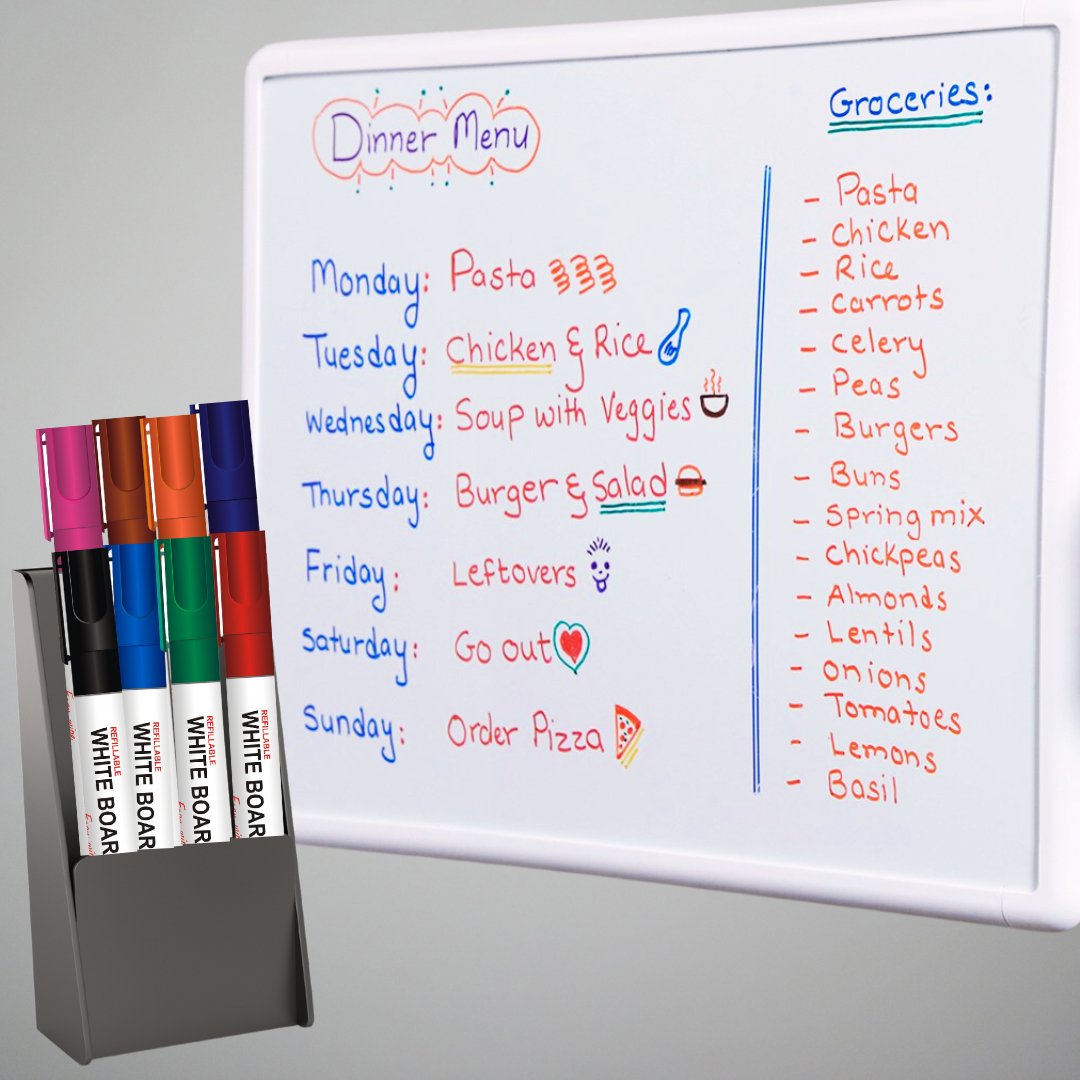 Dinner Menu
Monday: Pasta
Tuesday: Chicken & Rice
Wednesday: Soup with Veggies
Thursday: Burger & Salad
Friday: Leftovers
Saturday: Go out
Sunday: Order Pizza
Groceries:
- Pasta
- Chicken
- Rice
- Carrots
- Celery
- Peas
- Burgers
- Buns
- Spring mix
- Chickpeas
- Almonds
- Lentils
- Onions
- Tomatoes
- Lemons
- Basil
REFILLABLE
WHITE BOAR
REFILLABLE
WHITE BOAR
REFILLABLE
WHITE BOAR
REFILLABLE
WHITE BOAR